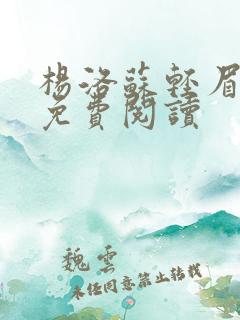 楊洛蘇輕眉
免費閱讀
魏雲
未經同意禁止轉載